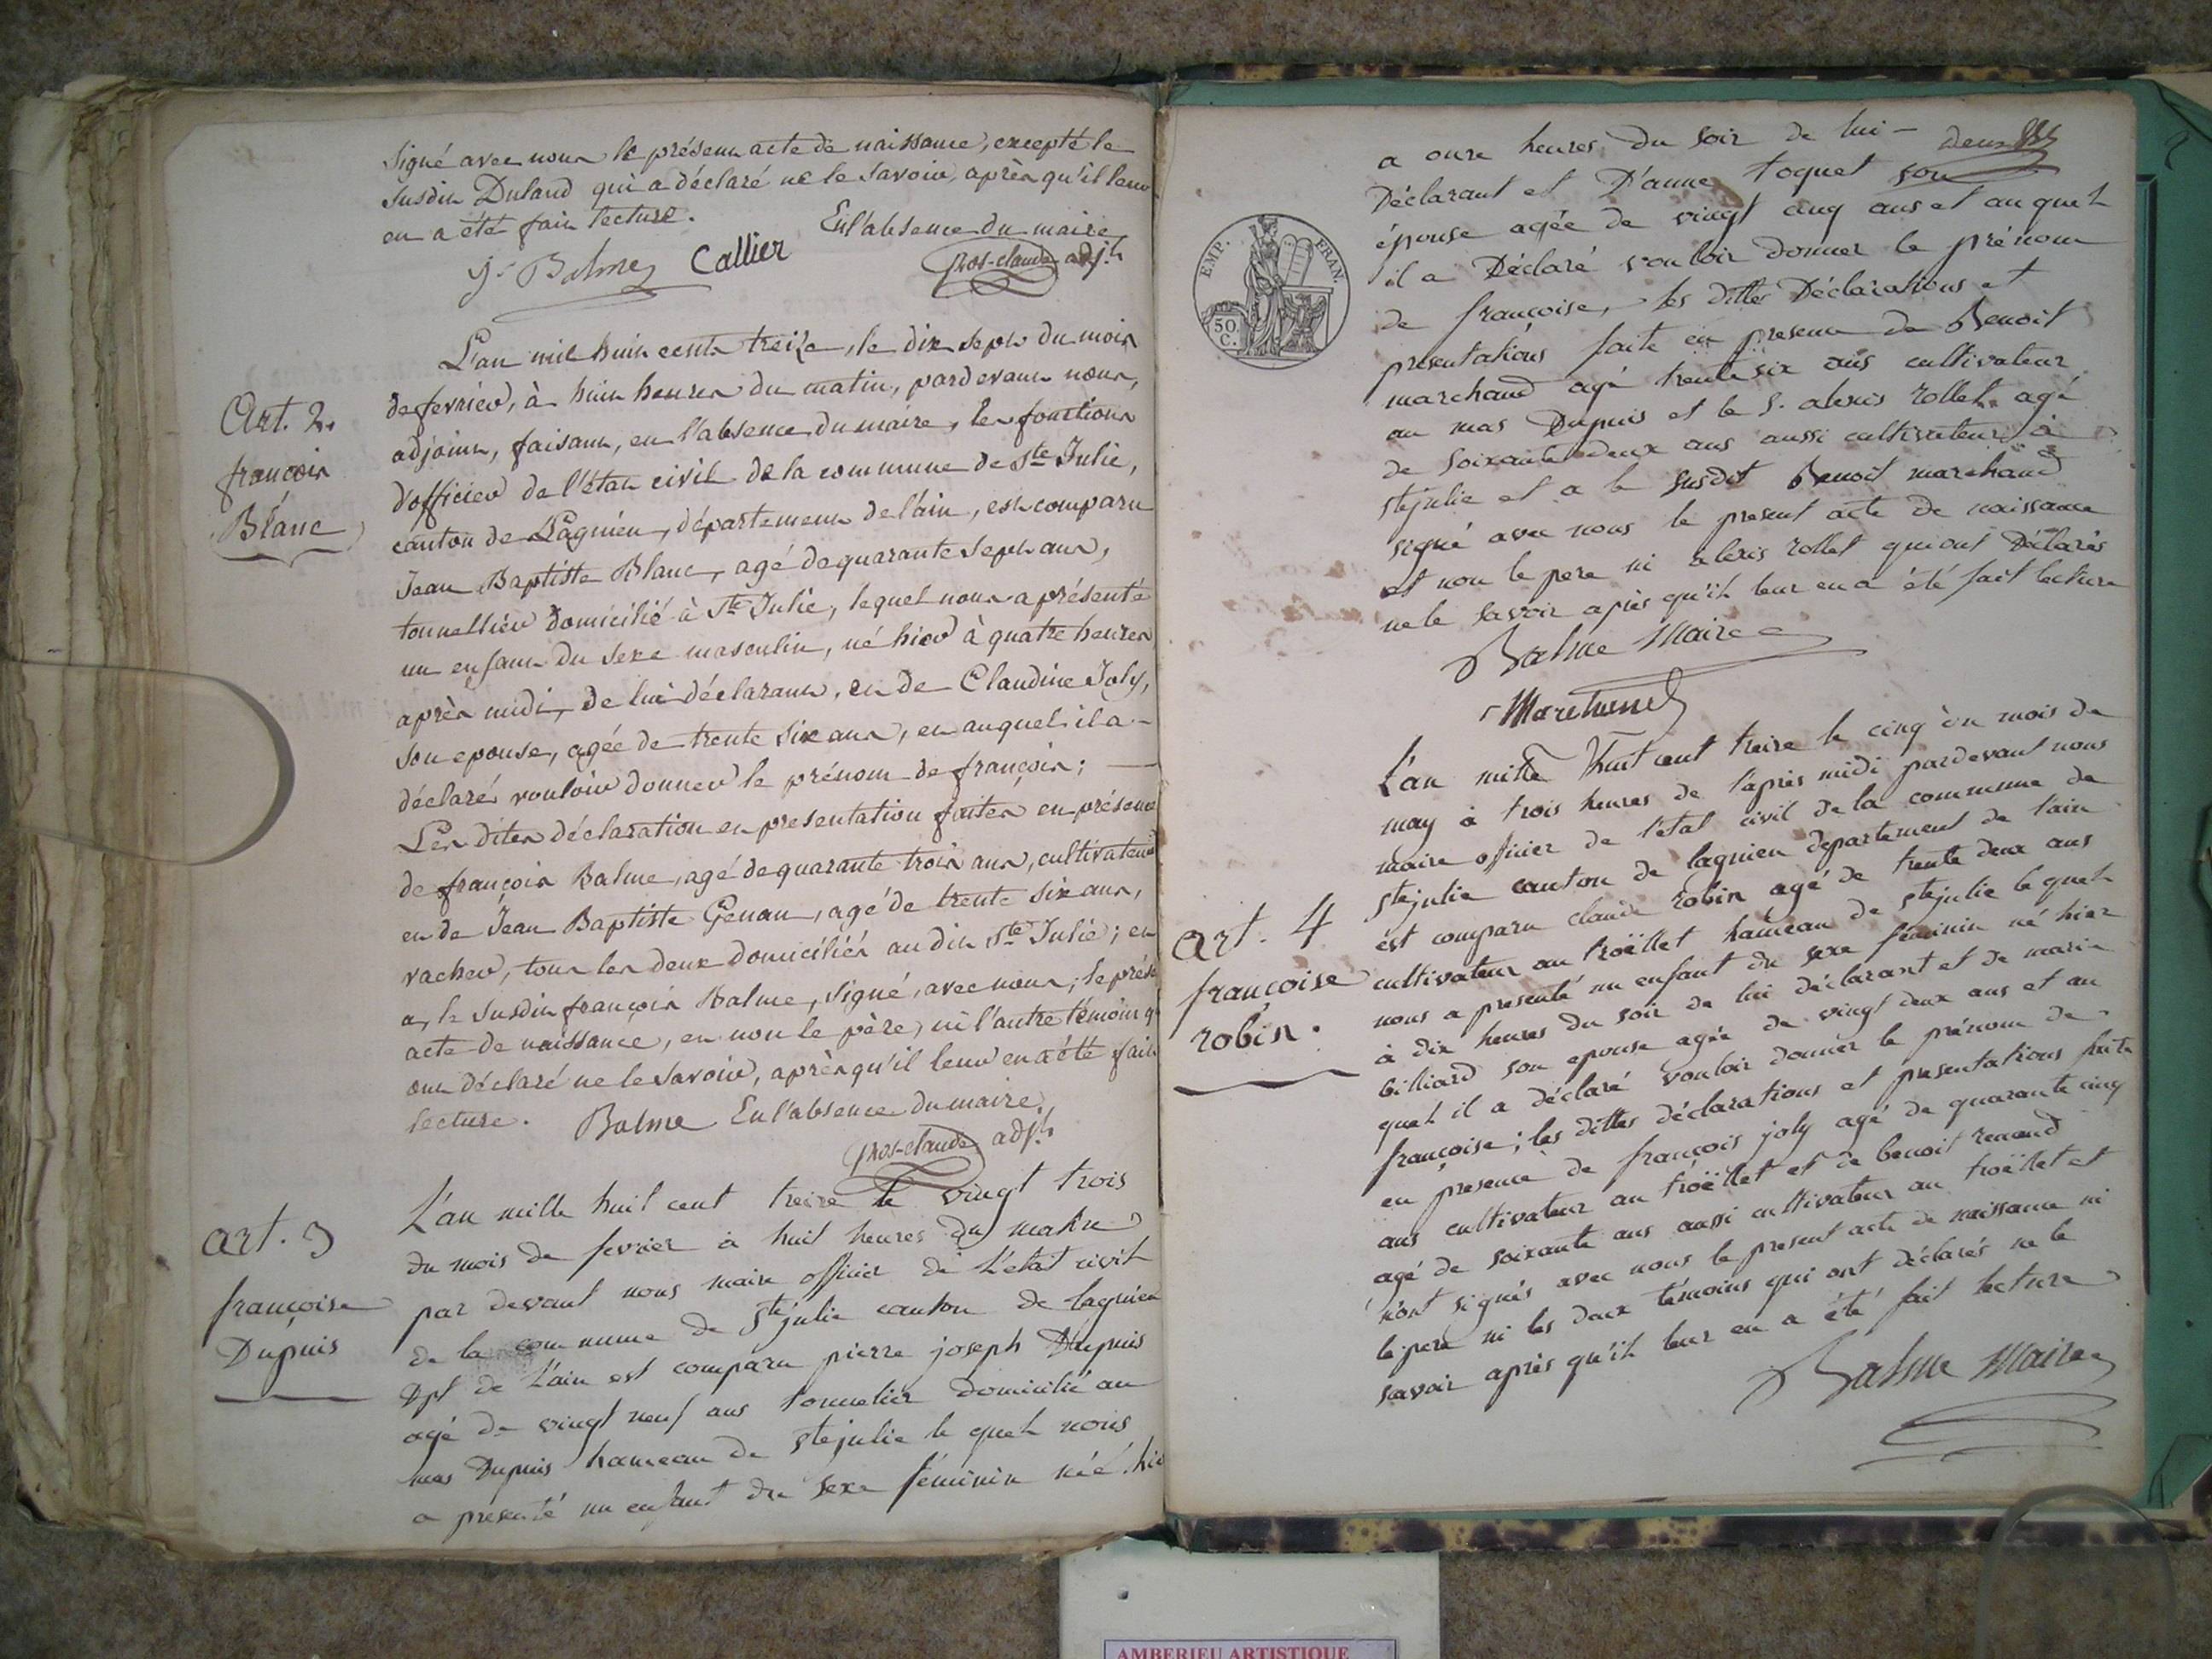 signé avec nous le présent acte de naissance, excepté le
susdit Duland qui a déclaré ne le savoir, après qu'il leur
en a été fait lecture.
En l'absence du maire
Balme Callier
gros-claude adjt
Art. 2.
françois
Blanc
L'an mil huit cents treize, le dix sept du mois
de fevrier, à huit heures du matin, pardevant nous,
adjoint, faisant, en l'absence du maire, les fonctions
d'officier de l'état civil de la commune de Ste Julie,
canton de Lagnieu, département de l'ain, est comparu
Jean Baptiste Blanc, agé de quarante sept ans,
tonnellier domicilié à Ste Julie, lequel nous a présenté
un enfant du sexe masculin, né hier à quatre heures
après midi, de lui déclarant, et de Claudine Joly,
son epouse, agée de trente six ans, et auquel il a
déclaré vouloir donner le prénom de françois;
Les dites déclaration et presentation faites en présence
de françois Balme, agé de quarante trois ans, cultivateur
et de Jean Baptiste Genau, agé de trente six ans,
vacher, tous les deux domiciliés au dit Ste Julie; et
a, le susdit françois Balme, signé, avec nous, le prése
acte de naissance, et non le père, ni l'autre témoin q
ont déclaré ne le savoir, après qu'il leur en a été fait
lecture. Balme En l'absence du maire,
gros-claude adjt
art. 3
françoise
Dupuis
L'an mille huit cent treize le vingt trois
du mois de fevrier à huit heures du matin
par devant nous maire officier de L'état civil
de la commune de stejulie canton de lagnieu
Dpt de L'ain est comparu pierre joseph Dupuis
agé de vingt neuf ans tonnelier domicilié au
mas Dupuis hameau de stejulie le quel nous
a présenté un enfant du sexe féminin née hie
EMP. FRAN.
50 C.
a onze heures du soir de lui
Déclarant et D'anne toquet son
épouse agée de vingt cinq ans et au quel
il a Déclaré vouloir donner le prénom
de françoise, les dittes Déclarations et
presentations faite en presence de Benoit
marchand agé trente six ans cultivateur
au mas Dupuis et le S. alexis rollet agé
de soixante deux ans aussi cultivateur à
stejulie et a le susdit Benoit marchand
signé avec nous le present acte de naissance
et non le pere ni alexis rollet qui ont Déclarés
ne le savoir après qu'il leur en a été fait lecture
Balme Maire
Marchand
art. 4
françoise
robin.
L'an mille huit cent treize le cinq du mois de
may à trois heures de l'après midi pardevant nous
maire officier de l'etat civil de la commune de
stejulie canton de lagnieu departement de l'ain
est comparu claude robin agé de trente deux ans
cultivateur au troëllet hameau de stejulie le quel
nous a presenté un enfant du sexe féminin né hier
à dix heures du soir de lui déclarant et de marie
billiard son epouse agée de vingt deux ans et au
quel il a déclaré vouloir donner le prénom de
françoise; les dittes déclarations et presentations faite
en presence de françois joly agé de quarante cinq
ans cultivateur au troëllet et de benoit renaud
agé de soixante ans aussi cultivateur au troëllet et
n'ont signés avec nous le present acte de naissance ni
le pere ni les deux témoins qui ont déclarés ne le
savoir après qu'il leur en a été fait lecture
Balme Maire
AMBERIEU ARTISTIQUE